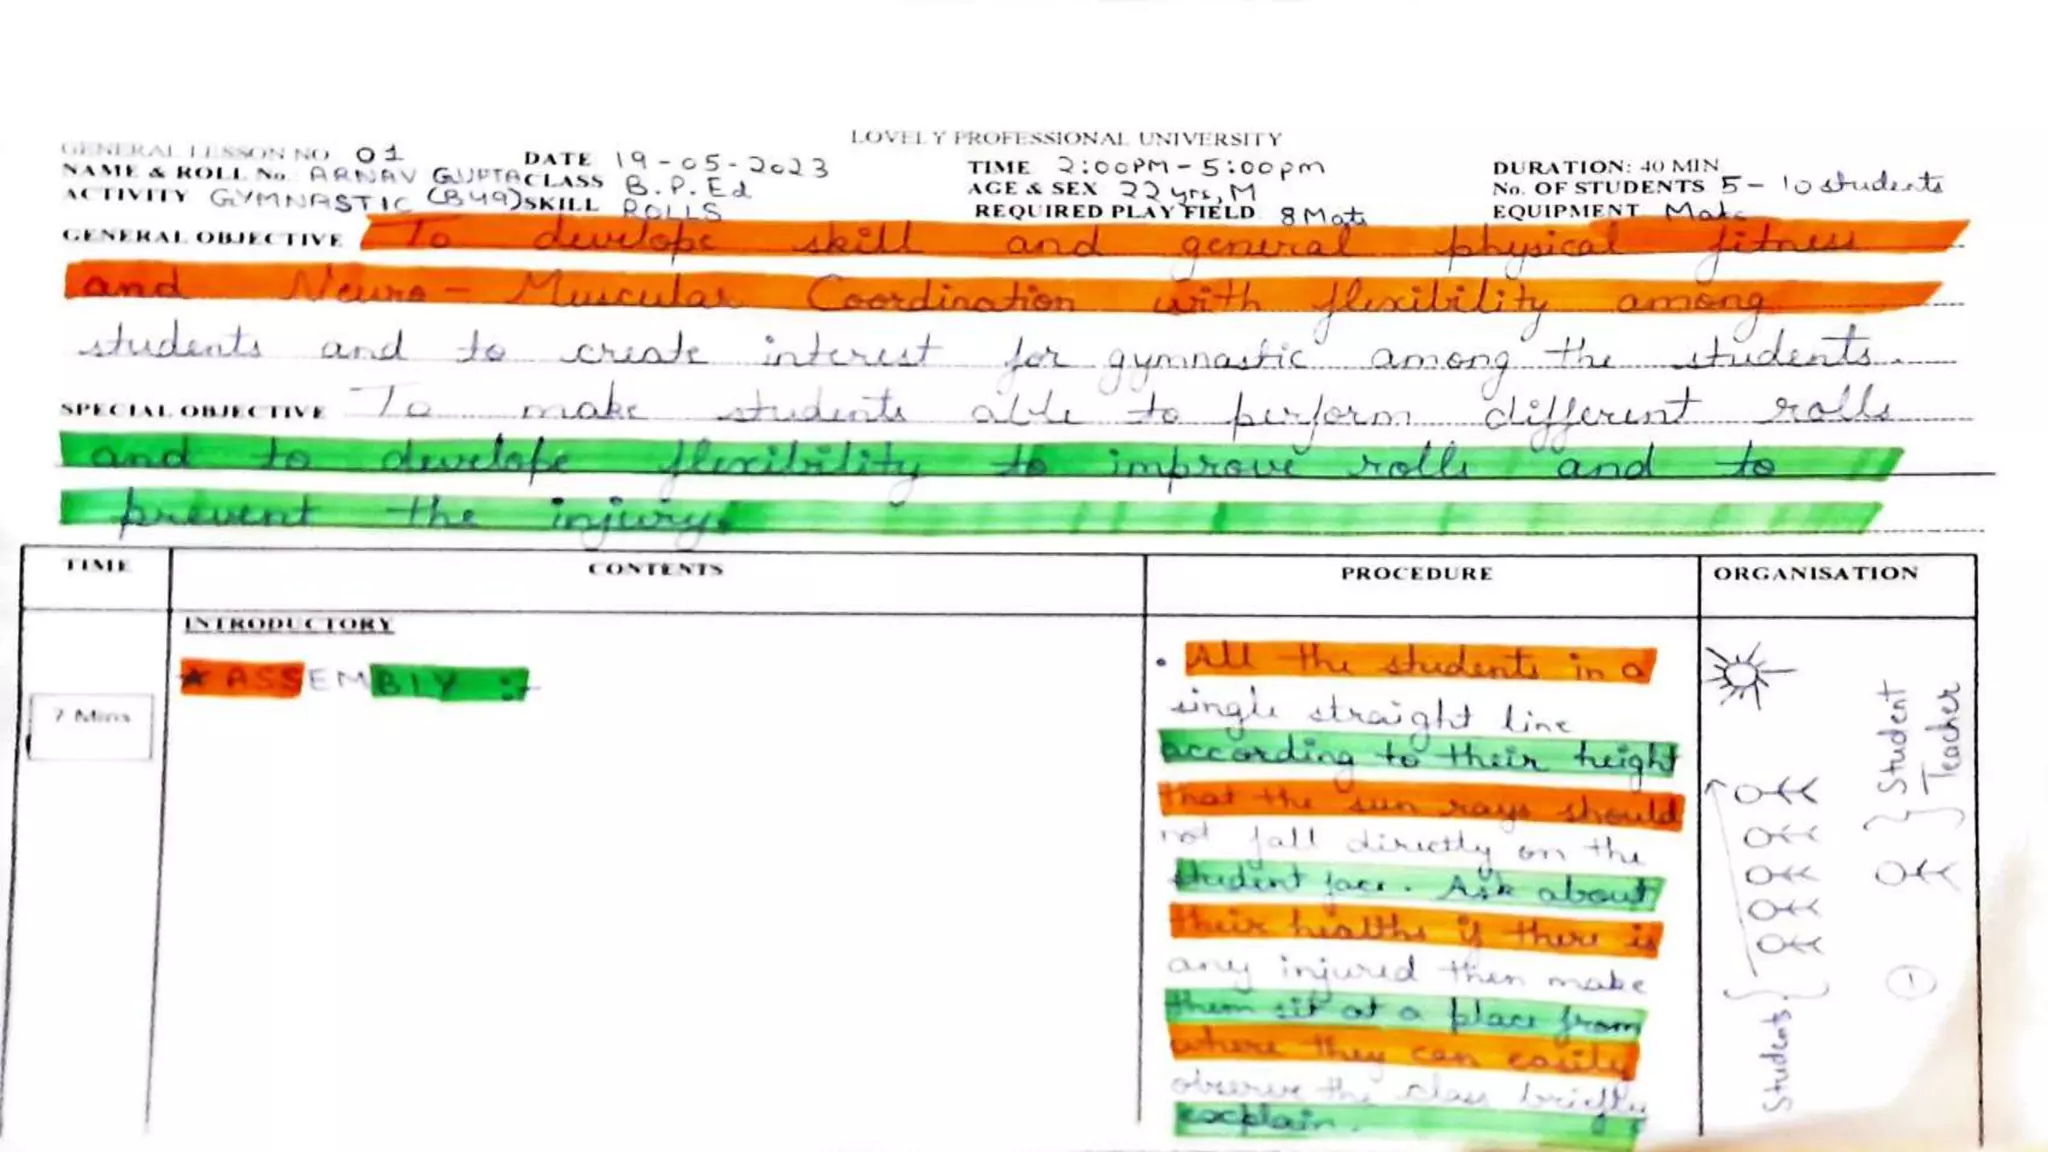 LOVELY PROFESSIONAL UNIVERSITY
GENERAL LESSON NO 01 DATE 19-05-2023 TIME 2:00PM-5:00pm DURATION: 40 MIN
NAME & ROLL No. ARNAV GUPTA CLASS B.P.Ed AGE & SEX 22 yrs, M No. OF STUDENTS 5-10 students
ACTIVITY GYMNASTIC (B49) SKILL ROLLS REQUIRED PLAY FIELD 8 Mats EQUIPMENT Mats
GENERAL OBJECTIVE To develope skill and general physical fitness
and Neuro-Muscular Coordination with flexibility among
students and to create interest for gymnastic among the students.
SPECIAL OBJECTIVE To make students able to perform different rolls
and to develope flexibility to improve rolls and to
prevent the injury.
TIME CONTENTS PROCEDURE ORGANISATION
INTRODUCTORY
7 Mins
* ASSEMBLY :-
• All the students in a
single straight line
according to their height
that the sun rays should
not fall directly on the
student face. Ask about
their healths if there is
any injured then make
them sit at a place from
where they can easily
observe the class briefly
explain.
Student
Teacher
Students
1